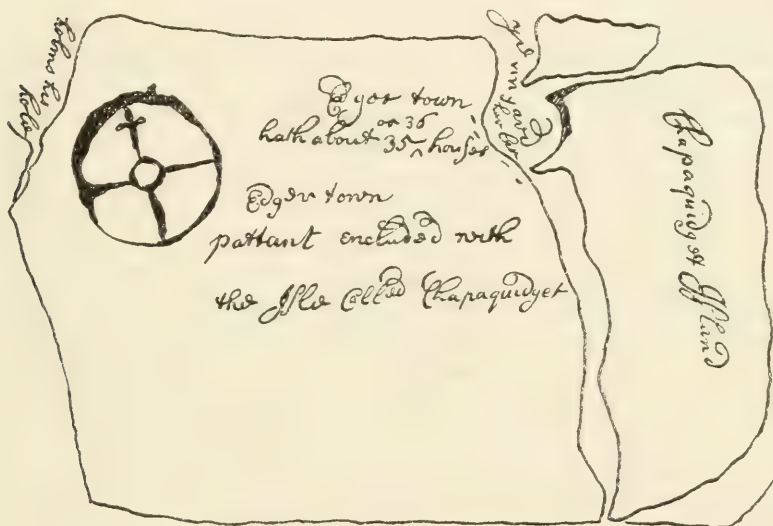 holms his
hole
Egor town
or 36
hath about 35 ^ houses
Edger town
pattant encluded with
the Isle Called Chapaquidget
vinyard
harber
Chapaquidget Island